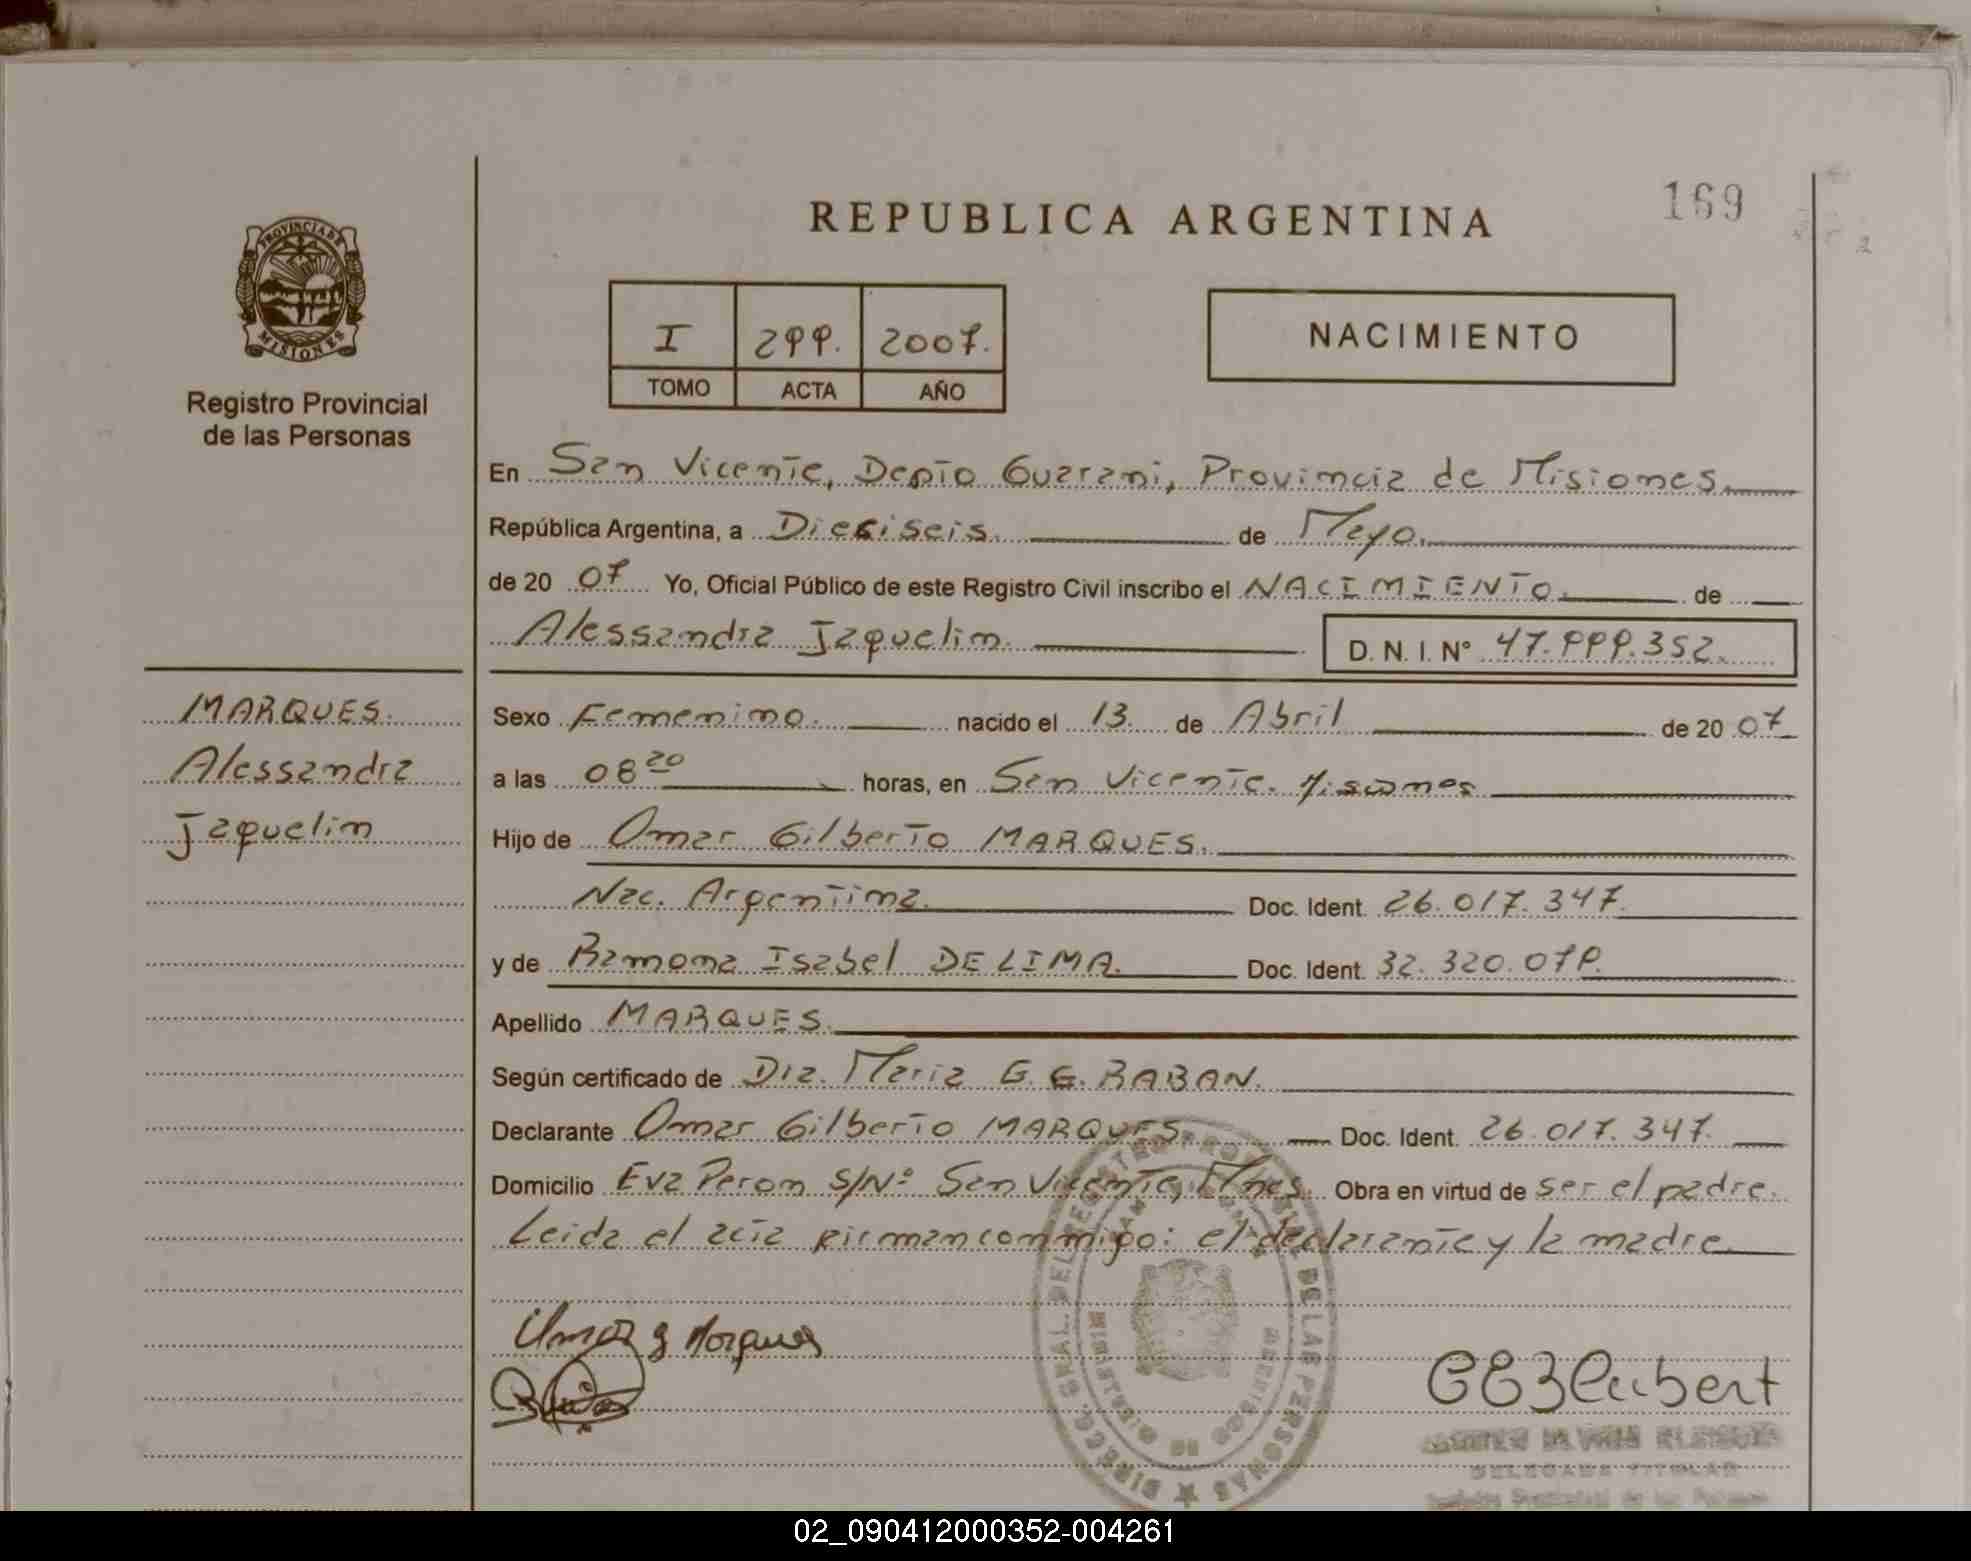 REPUBLICA ARGENTINA
169
PROVINCIA DE
MISIONES
Registro Provincial
de las Personas
I 299. 2007.
TOMO ACTA AÑO
NACIMIENTO
En San Vicente, Depto Guarani, Provincia de Misiones.
República Argentina, a Dieciseis. de Mayo.
de 20 07 Yo, Oficial Público de este Registro Civil inscribo el NACIMIENTO. de
Alessandra Jaquelin. D. N. I. N° 47.999.352.
MARQUES.
Alessandra
Jaquelin
Sexo Femenino. nacido el 13. de Abril de 20 07
a las 08 20 horas, en San Vicente. Misiones
Hijo de Omar Gilberto MARQUES.
Nac. Argentina. Doc. Ident. 26.017.347.
y de Ramona Isabel DE LIMA. Doc. Ident. 32.320.079.
Apellido MARQUES.
Según certificado de Dra. Maria G. G. RABAN.
Declarante Omar Gilberto MARQUES. Doc. Ident. 26.017.347.
Domicilio Eva Peron S/Nº San Vicente, Mnes. Obra en virtud de ser el padre.
Leida el acta firman conmigo: el declarante y la madre.
Omar g Marques
DIRECC. GRAL. DEL REGISTRO PROVINCIAL DE LAS PERSONAS
DELEGADA TITULAR
02_090412000352-004261